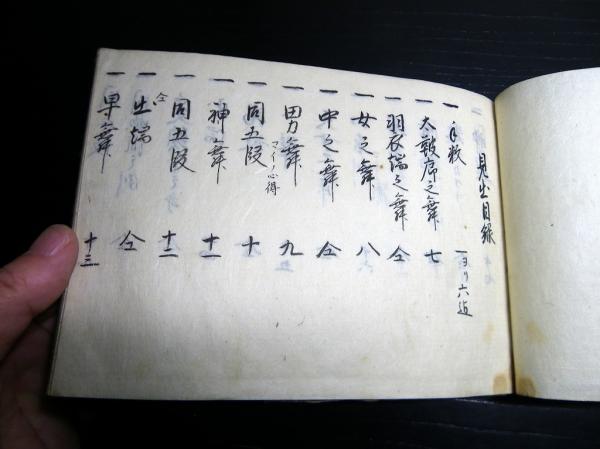 見出目録
一 手数 一ヨリ六迄
一 太鼓序之舞 七
一 羽衣端之舞 仝
一 女之舞 八
一 中之舞 仝
一 男舞 マイノ心得 九
一 同五段 十
一 神舞 十一
一 同五段 十二
一 出端 仝
一 早舞 十三